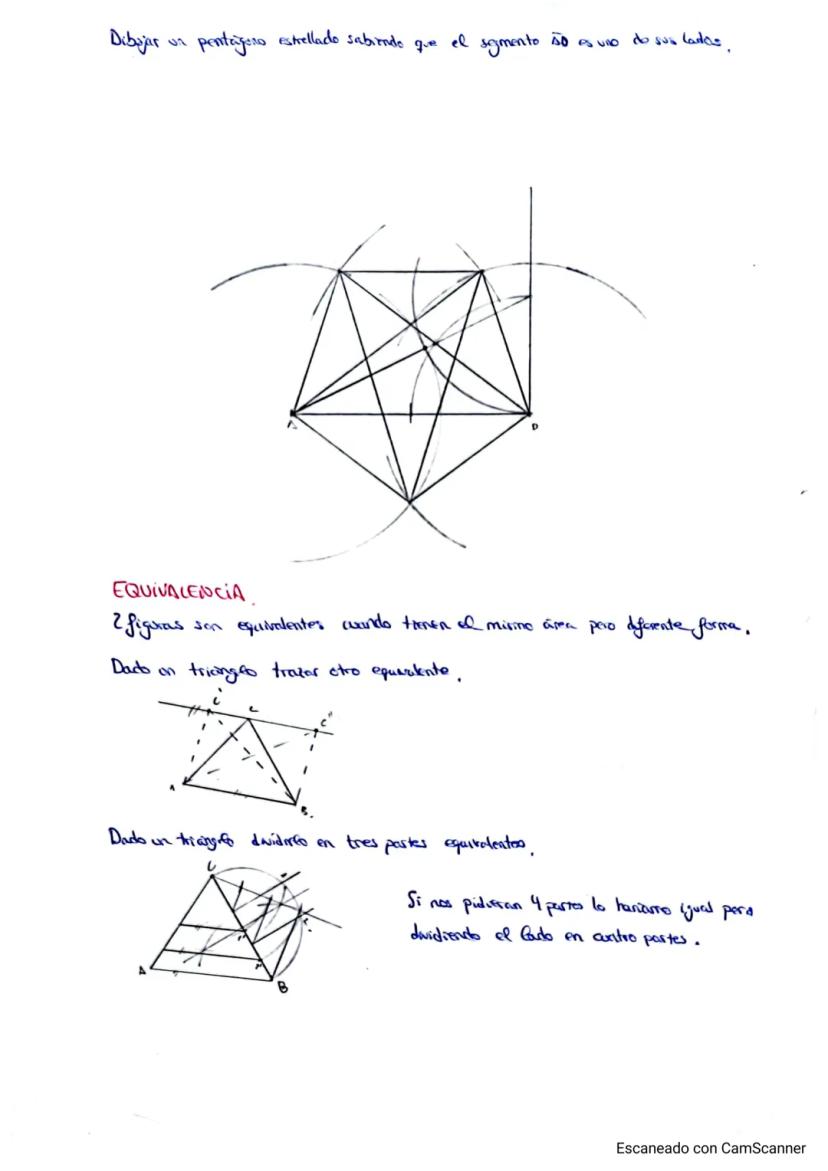 Dibujar un pentágono estrellado sabiendo que el segmento AD es uno de sus lados.
A
D
EQUIVALENCIA.
2 figuras son equivalentes cuando tienen el mismo área pero diferente forma.
Dado un triángulo trazar otro equivalente.
C'
C
C''
A
B
Dado un triángulo dividirlo en tres partes equivalentes.
C
A
B
Si nos pidieran 4 partes lo haríamos igual pero
dividiendo el lado en cuatro partes.
Escaneado con CamScanner